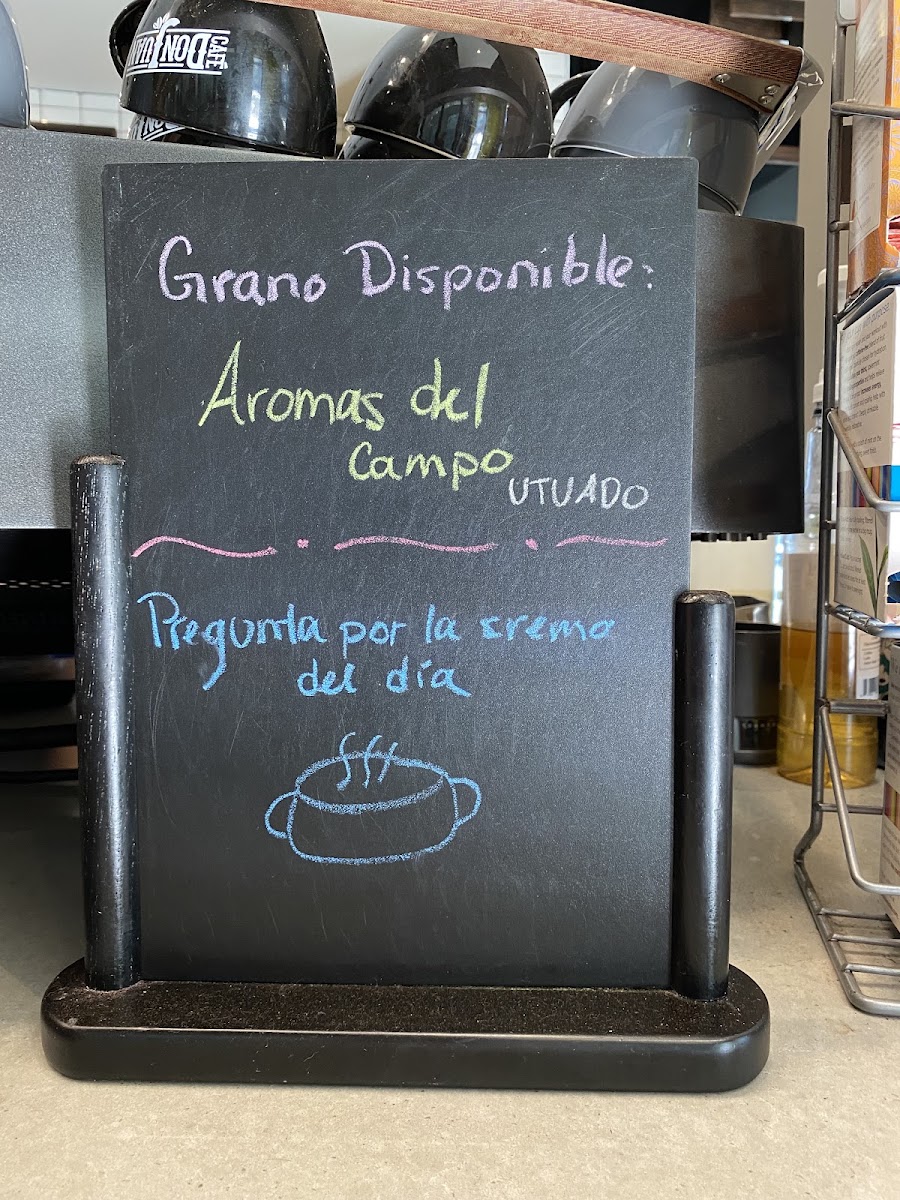 CAFÉ
DON JUAN
Grano Disponible:
Aromas del
Campo
UTUADO
Pregunta por la crema
del día